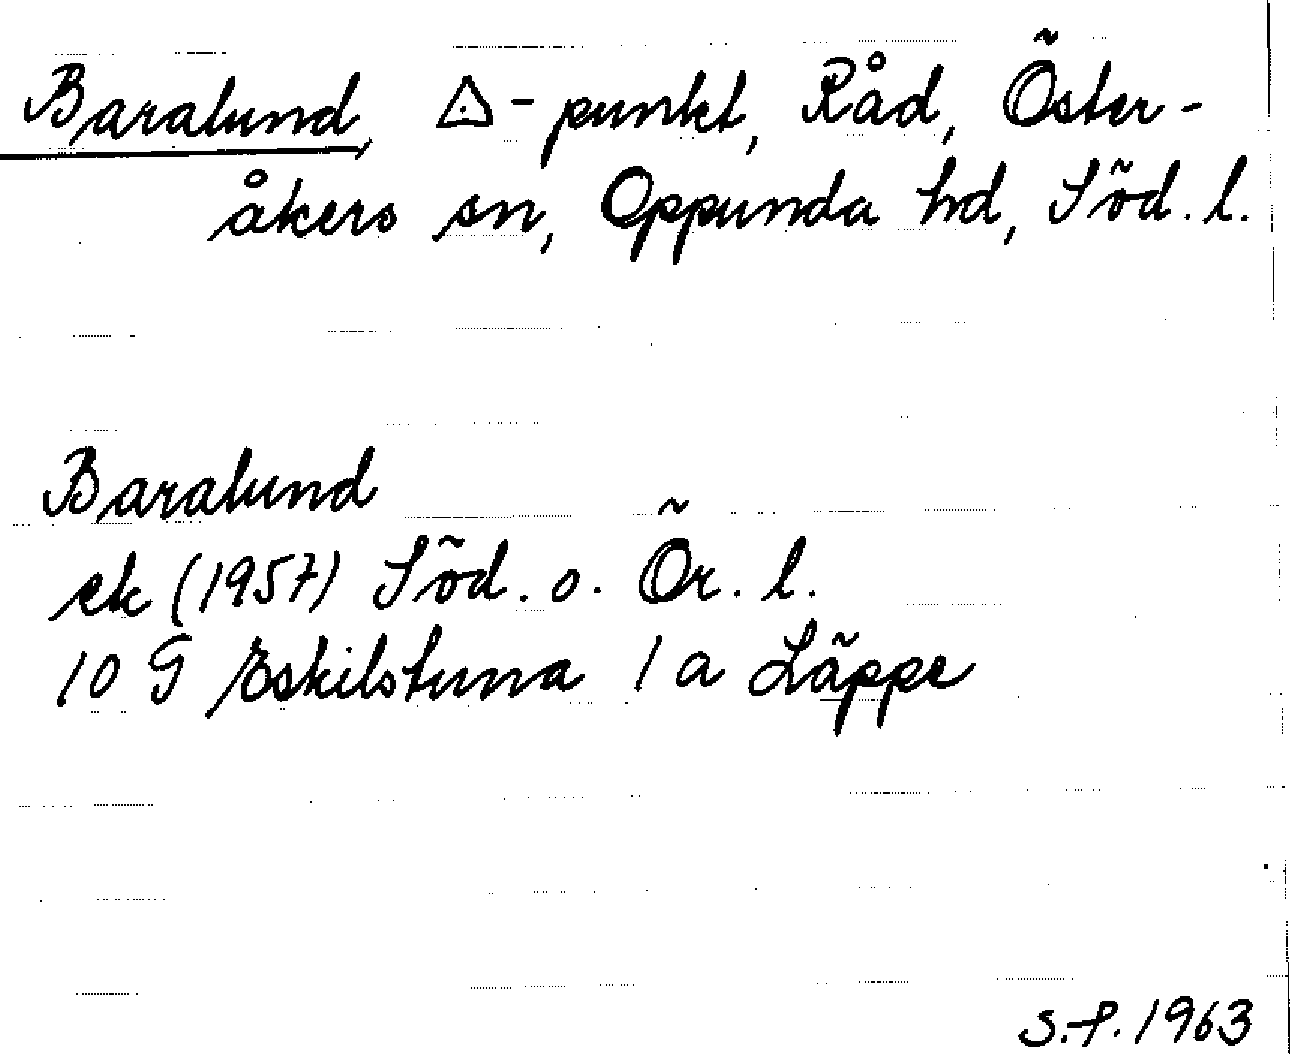 Baralund, △-punkt, Råd, Öster-
åkers sn, Oppunda hd, Söd. l.
Baralund
ek (1957) Söd. o. Ör. l.
10 G Eskilstuna 1 a Läppe
S.-P. 1963